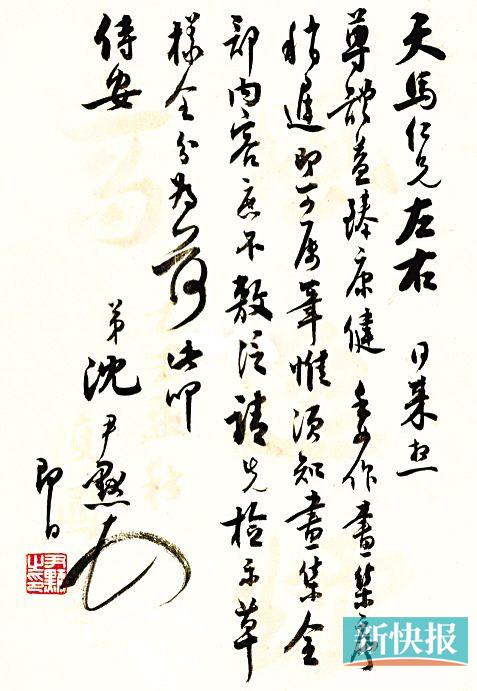 天馬仁兄左右 日来想
尊體益臻康健 委作畫集序
稍遲即可属筆惟須知畫集全
部内容庶不敷泛請先检示草
樣全分為荷 此叩
侍安
弟沈尹默
即日
尹默之印
新快报